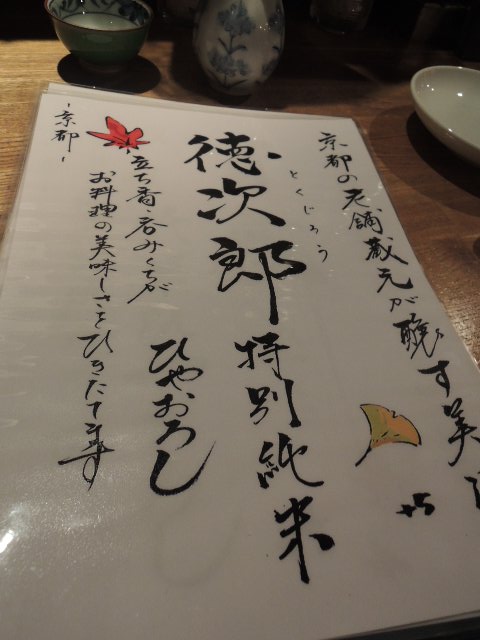 京都の老舗蔵元が醸す美
とくじろう
徳次郎 特別純米
ひやおろし
立ち香・呑みくちが
お料理の美味しさをひきたてます
-京都-